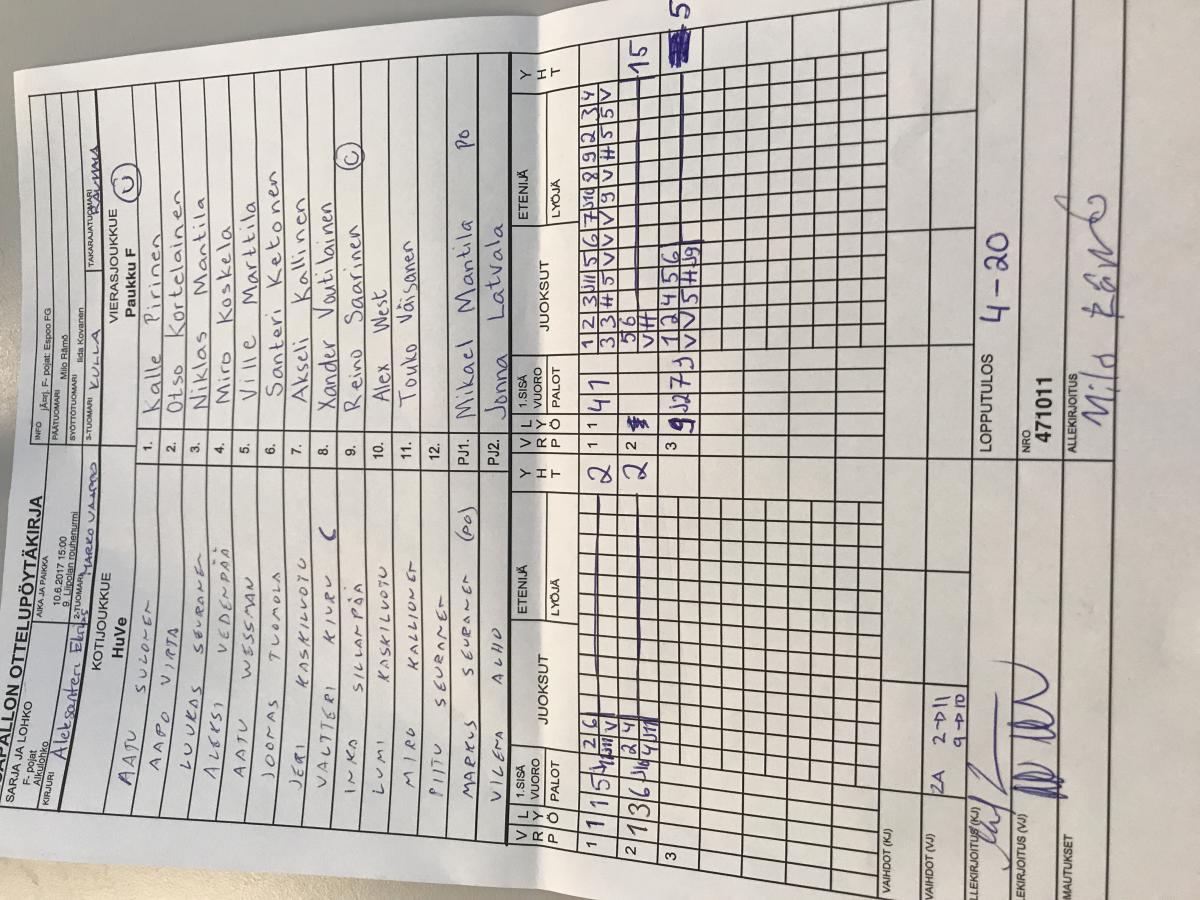 SAPALLON OTTELUPÖYTÄKIRJA
SARJA JA LOHKO
F- pojat
Alkulohko
AIKA JA PAIKKA
10.6.2017 15:00
9. Liipolan rouhenurmi
INFO
F- pojat: Espoo FG
PÄÄTUOMARI Milo Rämö
SYÖTTÖTUOMARI Iida Kovanen
KIRJURI Aleksanteri
2-TUOMARI MARKO
3-TUOMARI KULLA
TAKARAJATUOMARI
KOTIJOUKKUE
HuVe
VIERASJOUKKUE
Paukku F
AATU SULONEN 1. Kalle Pirinen
AAPO VIRTA 2. Otso Kortelainen
LUUKAS SEURANEN 3. Niklas Mantila
ALEKSI VEDENPÄÄ 4. Miro Koskela
AATU WESSMAN 5. Ville Marttila
JOONAS TUOMOLA 6. Santeri Ketonen
JERI KASKILUOTU 7. Akseli Kallinen
VALTTERI KIURU C 8. Xander Voutilainen
INKA SILLANPÄÄ 9. Reino Saarinen C
LUMI KASKILUOTU 10. Alex West
MIRO KALLIONEN 11. Touko Väisänen
PIITU SEURANEN 12.
MARKUS SEURANEN (PO) PJ1. Mikael Mantila PO
VILEMA ALHO PJ2. Jonna Latvala
V R P L Y Ö 1.SISÄ VUORO PALOT JUOKSUT ETENIJÄ LYÖJÄ Y H T V R P L Y Ö 1.SISÄ VUORO PALOT JUOKSUT ETENIJÄ LYÖJÄ Y H T
1 1 1 5 2 6 2 1 1 4 1 1 2 3 J11 5 6 7 J10 8 9 2 3 4
V 3 3 H 5 V V V 9 V H 5 5 V
2 1 3 6 J10 2 4 2 2 5 6 15
4 J11 V H
3 3 9 J2 7 J 1 2 4 5 6 5
V V 5 H J9
VAIHDOT (KJ)
VAIHDOT (VJ) 2A 2→J11
9→J10
LLEKIRJOITUS (KJ)
LOPPUTULOS 4-20
LEKIRJOITUS (VJ)
NRO
471011
MAUTUKSET
ALLEKIRJOITUS
Milo Rämö